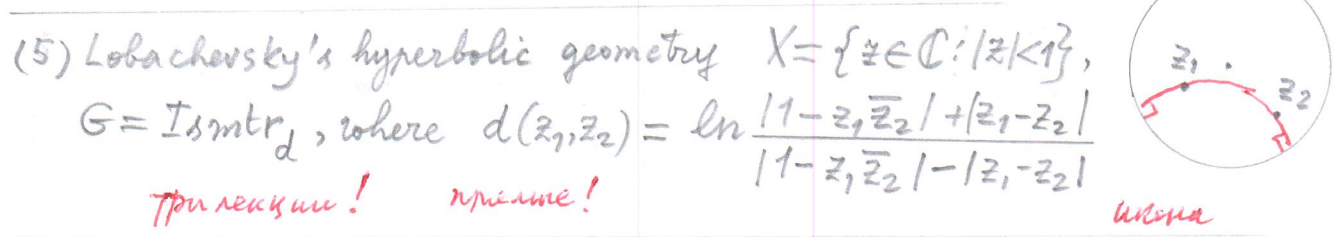 (5) Lobachevsky's hyperbolic geometry X = {z ∈ ℂ : |z| < 1},
G = Ismtr_d, where d(z₁, z₂) = ln (|1 - z₁z̄₂| + |z₁ - z₂|) / (|1 - z₁z̄₂| - |z₁ - z₂|)
три лекции! прямые!
z₁
z₂